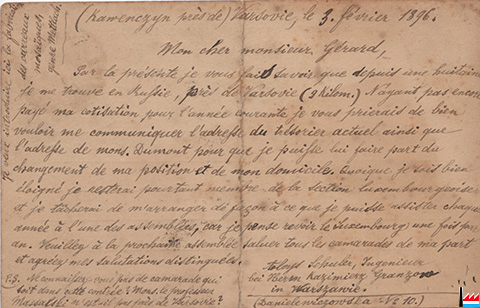 (Kamenczyn près de) Varsovie, le 3. février 1896.
Mon cher monsieur Gérard,
Par la présente je vous fais savoir que depuis une huitaine
je me trouve en Russie, près de Varsovie (2 kilom.) N'ayant pas encore
payé ma cotisation pour l'année courante je vous prierais de bien
vouloir me communiquer l'adresse du trésorier actuel ainsi que
l'adresse de mons. Dumont pour que je puisse lui faire part du
changement de ma position et de mon domicile. Quoique je sois bien
éloigné je resterai pourtant membre de la section luxembourgeoise
et je tâcherai de m'arranger de façon à ce que je puisse assister chaque
année à l'une des assemblées, car je pense revoir le Luxembourg une fois par
an. Veuillez à la prochaine assemblée saluer tous les camarades de ma part
et agréez mes salutations distinguées.
Schuller, Ingenieur
P.S. Ne connaissez-vous pas de camarade qui
bei Herrn Kazimierz Granzow
soit dans cette contrée? Mons. le professeur
in Warszawie.
n'était pas près de
(Danielewiczowska No 10.)
je veux introduire ici la
de carreaux
mosaïques
genre Mettlach.